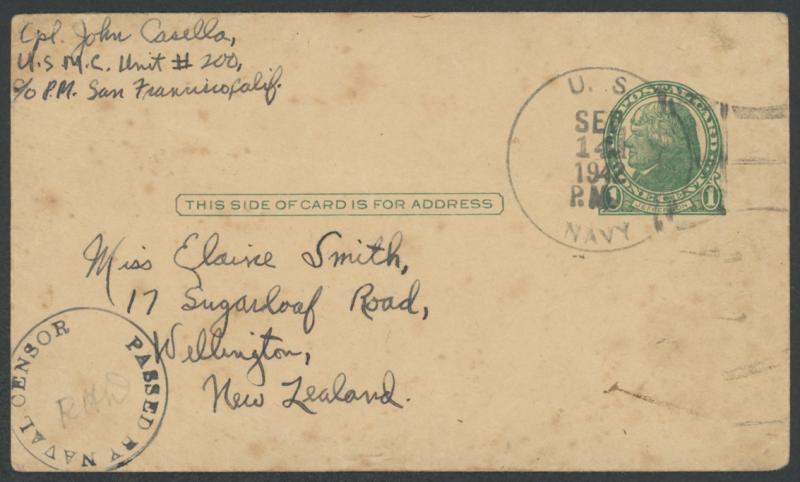 Cpl. John Casella,
U.S.M.C. Unit # 200,
c/o P.M. San Francisco, Calif.
U. S.
SE
14
194
P.M.
NAVY
POSTAL CARD
1 ONE CENT 1
JEFFERSON
THIS SIDE OF CARD IS FOR ADDRESS
Miss Elaine Smith,
17 Sugarloaf Road,
Wellington,
New Zealand.
PASSED BY NAVAL CENSOR